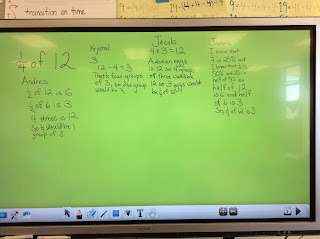 transition on time
1/4 of 12
Andres
1/2 of 12 is 6
1/2 of 6 is 3
4 threes is 12
So 1/4 would be 1
group of 3
Krystal
3
12 ÷ 4 = 3
That's four groups
of 3, so one group
would be
Jacob
4 x 3 = 12
A dozen eggs
is 12 so 4 groups
of three would be
12 so 3 eggs would
be 1/4 of 12
I know that
is 25% and
I know that 1/2 is
50% and
half of 50 so
half of 12
is 6 and half
of 6 is 3
So 1/4 of 12 is 3